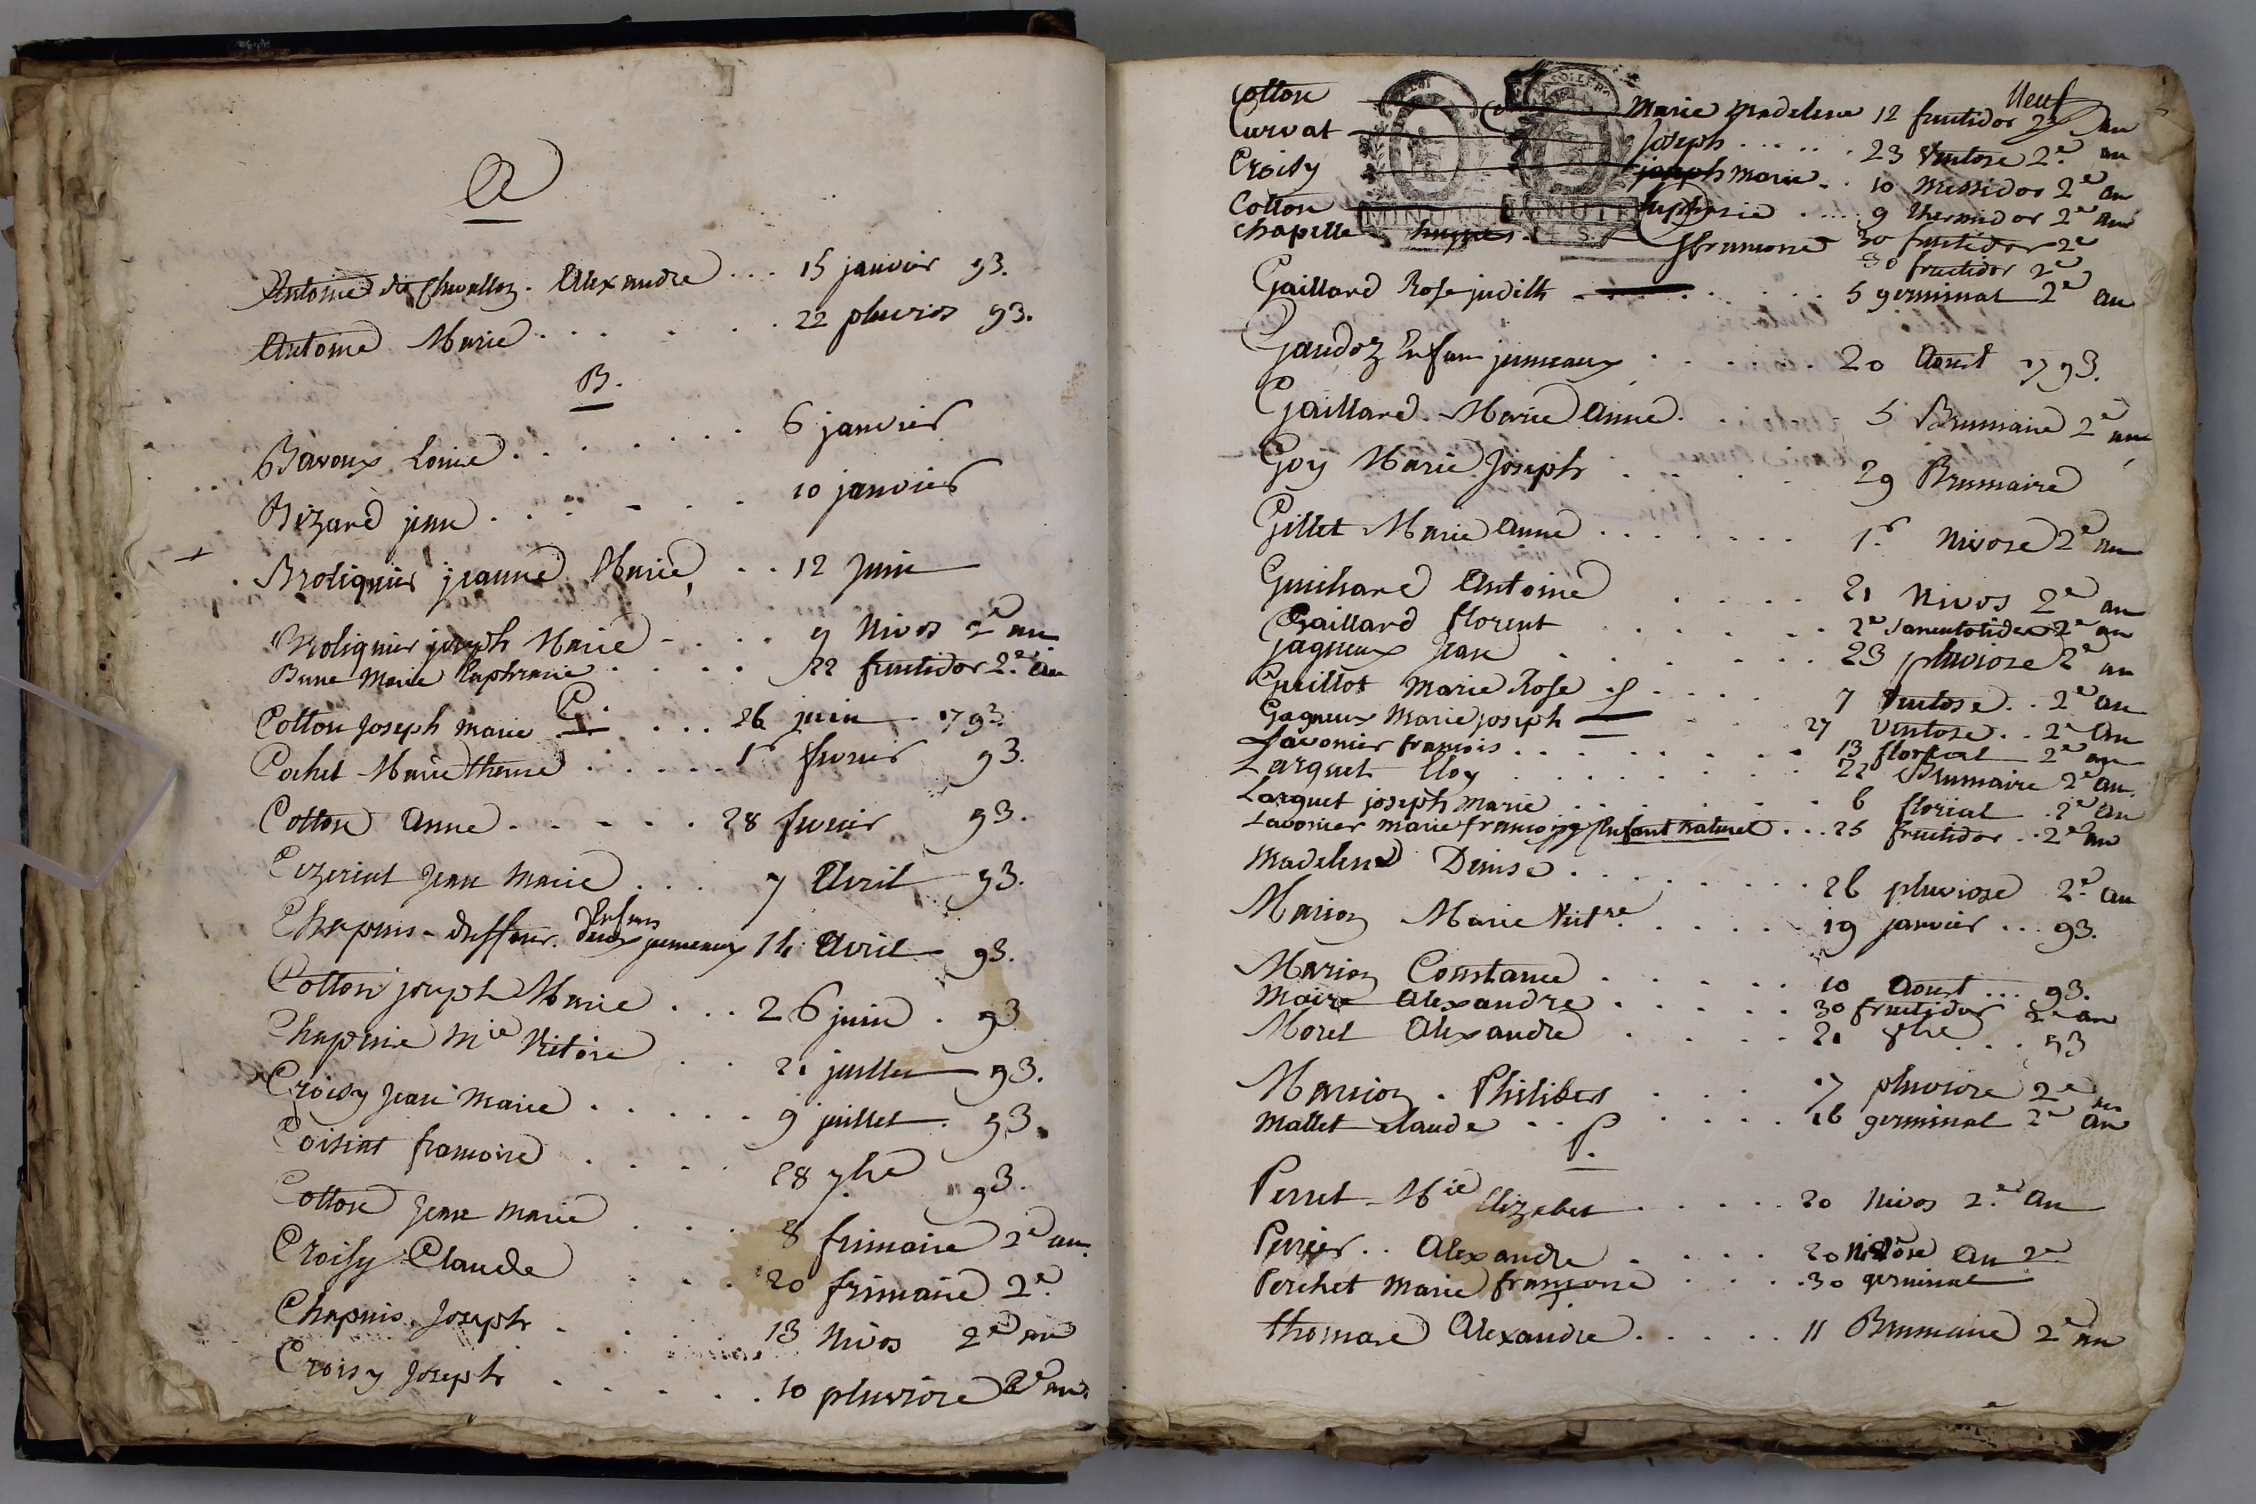 A
Antoine de Chevalloz. Alexandre ... 15 janvier 93.
Antoine Marie ..... 22 pluvios 93.
B.
Bavoux Louise ...... 6 janvier
Bizard jean ...... 10 janvier
Broliquier jeanne Marie .. 12 Juin
Broliquier joseph Marie .... 9 Nivos 2e an
Bune Marie Euphrasie .... 22 fructidor 2.e an
C.
Cotton Joseph marie .... 26 juin 1793
Cochet Marie therese ..... 1r fevrier 93.
Cotton Anne ..... 28 fevrier 93.
Cizeriat Jean Marie ... 7 Avril 93.
Chapuis Deux Enfans jumeaux 14 Avril 93.
Cotton joseph Marie ... 26 juin . 93
Chapuis Mie Vitoire .. 21 juillet 93.
Croisy Jean Marie ..... 9 juillet 93.
Coisiat francoise .... 28 7bre 93.
Cotton Jean Marie ... 8 frimaire 2e an.
Croisy Claude ... 20 frimaire 2e.
Chapuis Joseph .... 13 Nivos 2e an
Croisy Joseph ..... 10 pluviose 2e an.
Neuf
Cotton Marie Madelene 12 fructidor 2e an
Curvat Joseph ...... 23 Ventose 2.e an
Croisy joseph marie .. 10 Messidor 2e an
Cotton Euphrasie .... 9 thermidor 2e an
MINUTE
Chapelle francoise 30 fructidor 2e
30 fructidor 2e
Gaillard Rose judith ....... 5 germinal 2e an
Gaudoz Enfans jumeaux ..... 20 Aoust 1793.
Gaillard Marie Anne. .. 5 Brumaire 2e an
Goy Marie Joseph .... 29 Brumaire
Gillet Marie Anne ....... 1.r Nivose 2e an
Guichard Antoine .... 21 Nivos 2e an
Gaillard florent ...... 2e Sanculotides 2e an
jagneux Jean ...... 23 pluviose 2e an
Guillot Marie Rose .... 7 Ventose .. 2e an
Gagneux Marie joseph ... 27 Ventose .. 2e an
L
Lavonier francois ........ 13 floreal 2e an
Larquet Eloy ........ 22 Brumaire 2e an.
Larquet joseph marie ....... 6 florial 2e an
Lavonier marie francoise Enfant naturel ... 25 fructidor .. 2e an
Madelene Denise ........ 26 pluviose 2.e an
Marion Marie Vitre ..... 19 janvier ... 93.
Marion Constance ..... 10 Aoust ... 93.
Maire Alexandre ..... 30 fructidor 2e an
Morel Alexandre .... 21 8bre ... 93
Marion . Philibert .... 7 pluviose 2e an
Mallet claude ...... 26 germinal 2e an
P.
Perret Mie Elizabet ..... 20 Nivos 2.e an
Perier .. Alexandre .... 20 Nivose an 2e
Perchet Marie francoise .... 30 germinal
T.
thomas Alexandre ..... 11 Brumaire 2e an